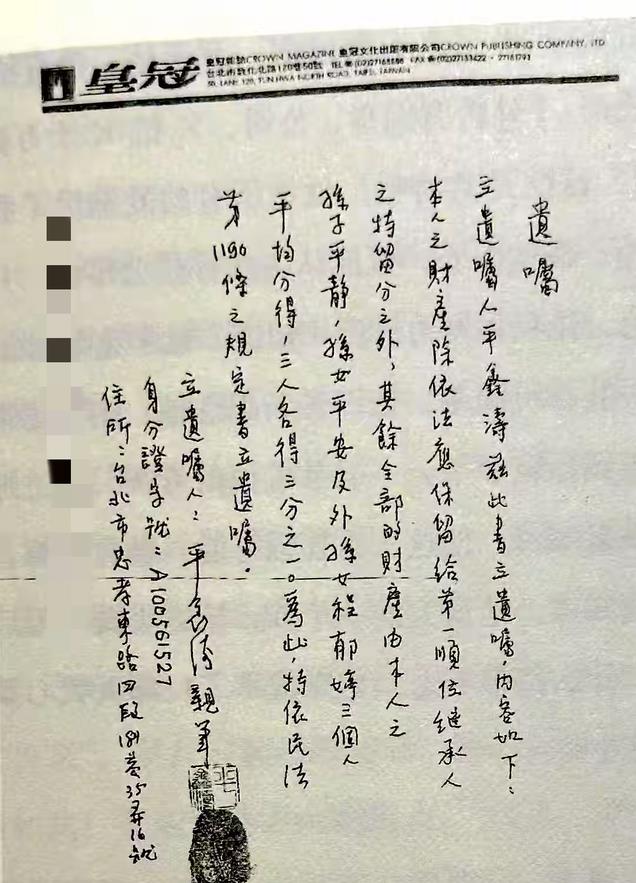 皇冠
皇冠雜誌CROWN MAGAZINE 皇冠文化出版有限公司CROWN PUBLISHING COMPANY, LTD
台北市敦化北路120巷50號 TEL 番(02)27168888 FAX 番(02)27133422・27181793
50, LANE 120, TUN HWA NORTH ROAD, TAIPEI, TAIWAN
遺囑
立遺囑人平鑫濤茲此書立遺囑,內容如下:
本人之財產除依法應保留給第一順位繼承人
之特留分之外,其餘全部的財產由本人之
孫子平靜,孫女平安及外孫女程郁婷三個人
平均分得,三人各得三分之一。為此,特依民法
第1190條之規定書立遺囑.
立遺囑人:平鑫濤親筆
身分證字號:A100561527
住所:台北市忠孝東路四段181巷35弄16號